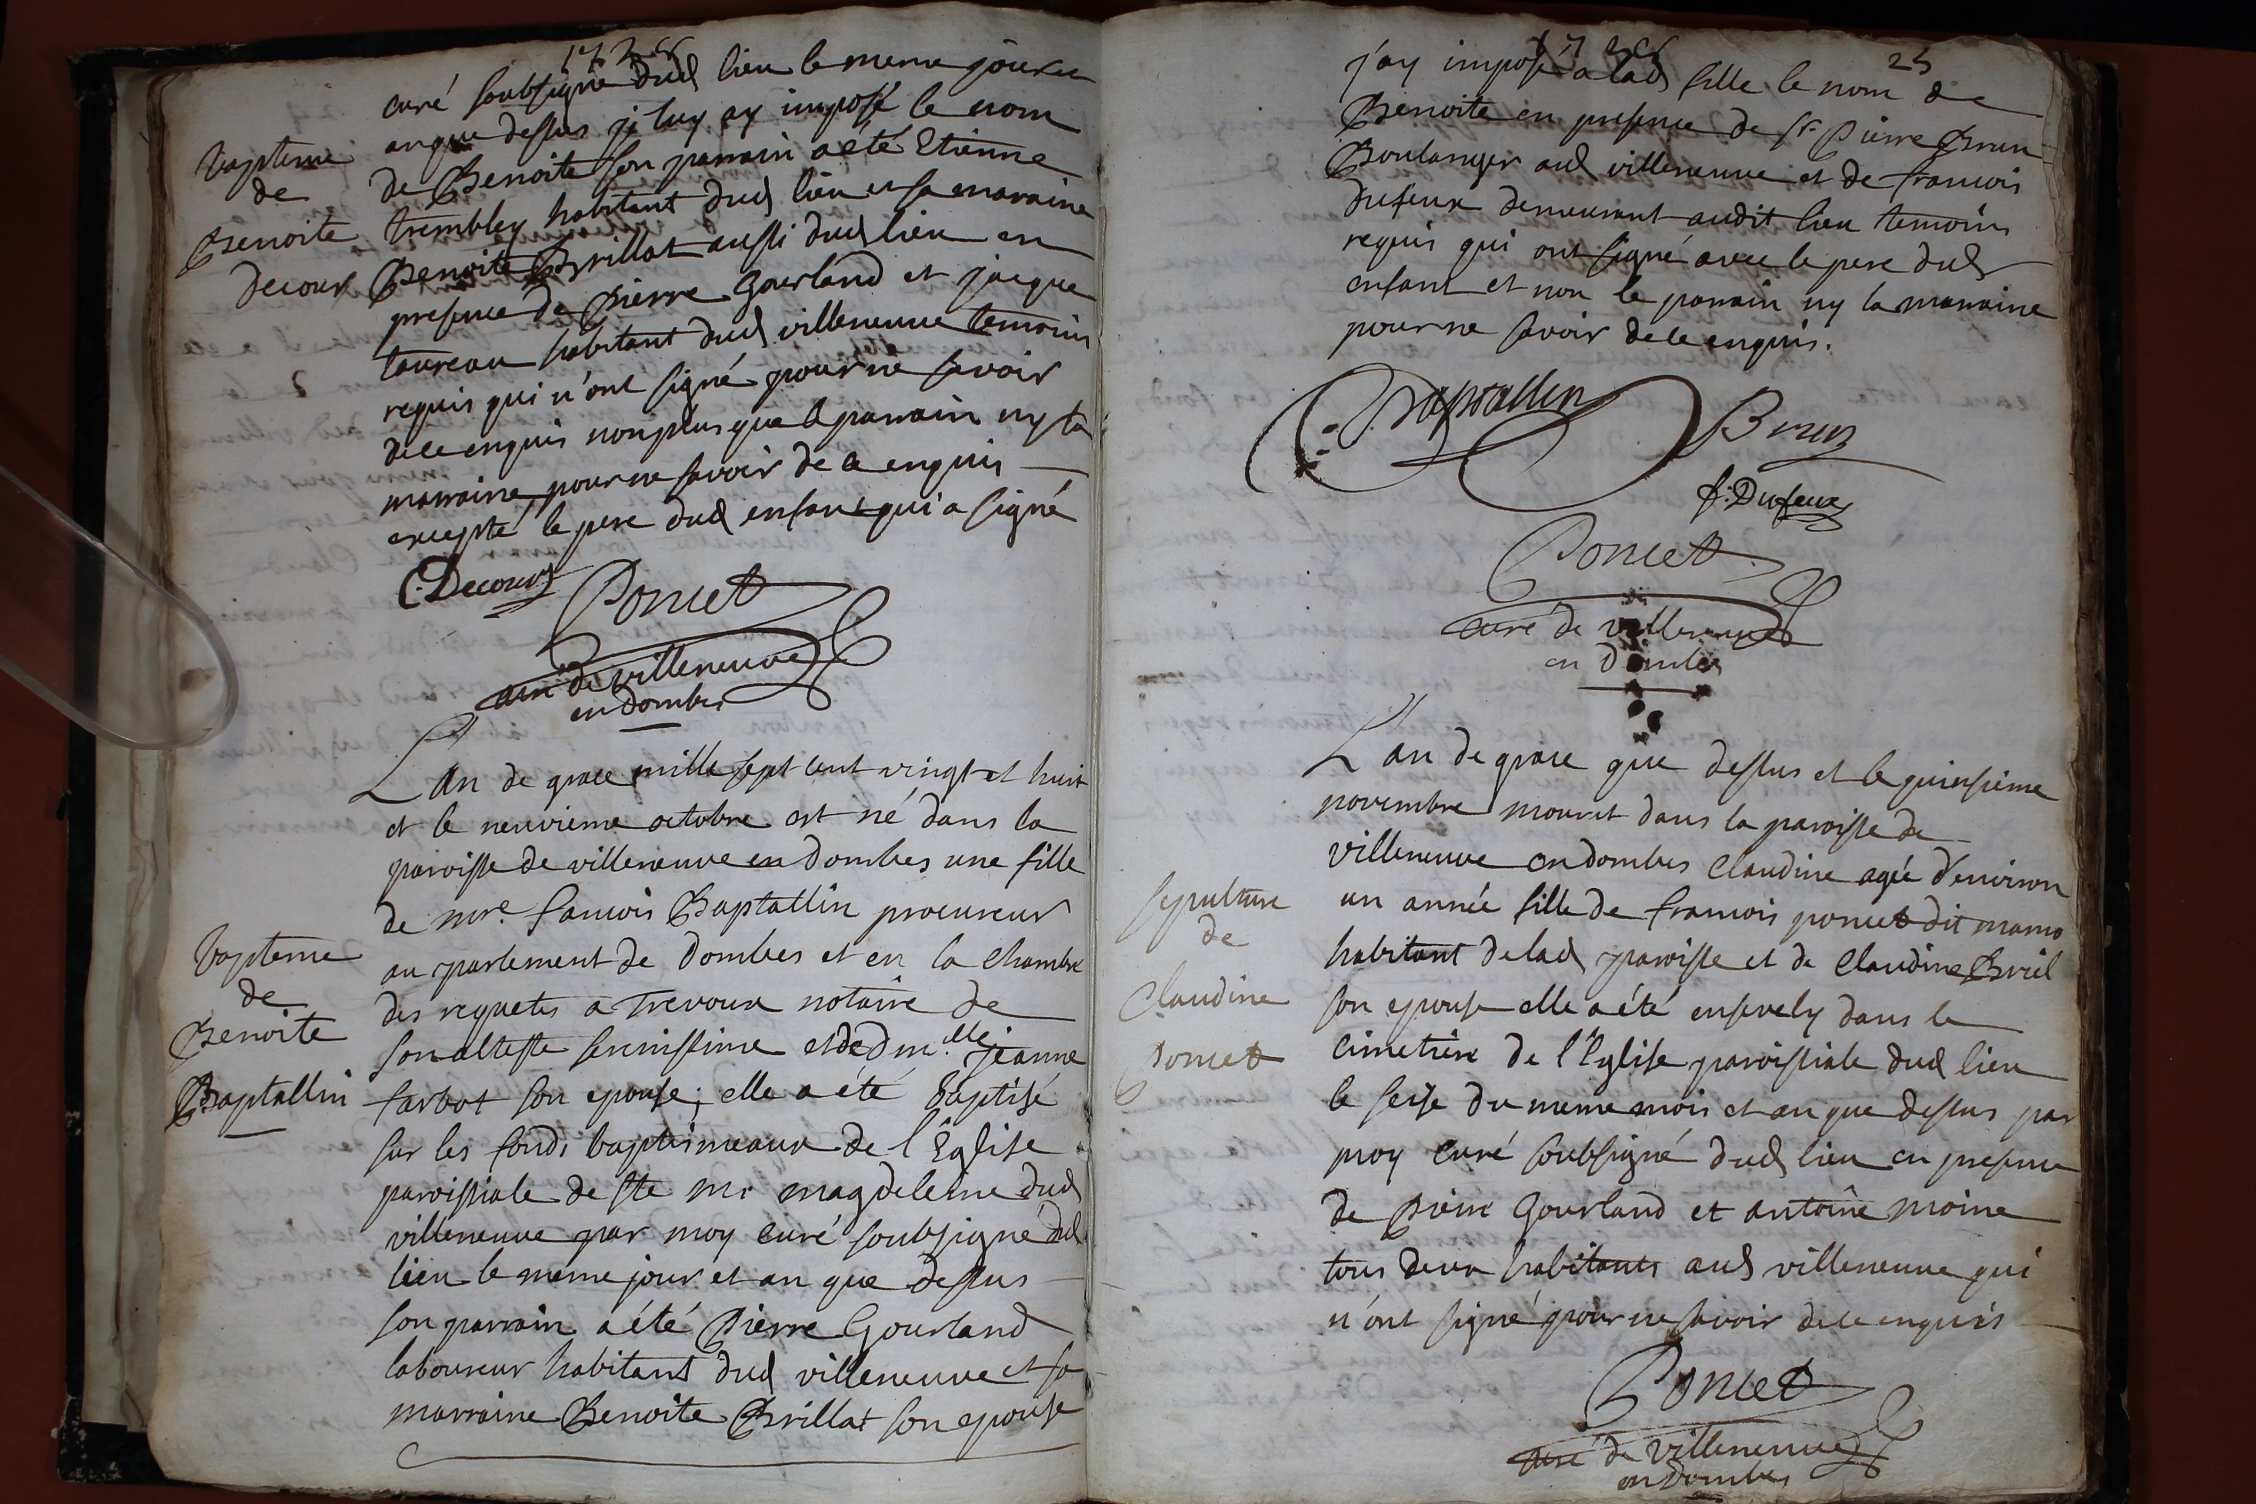 1728
curé soubsigné dud lieu le meme jour et
an que dessus je luy ay imposé le nom
de Benoite son parrain a été Etienne
trembley habitant dud lieu et sa maraine
Benoite Brillat aussi dud lieu en
presence de pierre Gourland et jacque
taureau habitant dud villeneuve temoins
requis qui n'ont signé pour ne savoir
de ce enquis non plus que le parrain ny la
marraine pour ne savoir de ce enquis
excepté le pere dud enfant qui a signé
bapteme
de
Benoite
Decour
C. Decour
Poncet
curé de villeneuve
en dombes
L'an de grace mille sept cent vingt et huit
et le neuvieme octobre est né dans la
paroisse de villeneuve en dombes une fille
de mre. francois Baptallin procureur
au parlement de dombes et en la chambre
des requetes a Trevoux notaire de
son altesse serenissime et de dmlle jeanne
farbot son epouse; elle a été baptisé
sur les fonds baptismeaux de l'Eglise
paroissiale de ste me magdeleine dud
villeneuve par moy curé soubsigné dud
lieu le meme jour et an que dessus
son parrain a été pierre Gourland
laboureur habitant dud villeneuve et sa
marraine Benoite Brillat son epouse
bapteme
de
Benoite
Baptallin
25
j'ay imposé a lad fille le nom de
Benoite en presence de sr. pierre Brun
Boulanger aud villeneuve et de francois
dufeux demeurant audit lieu temoins
requis qui ont signé avec le pere dud
enfant et non le parrain ny la marraine
pour ne savoir de ce enquis.
Baptallin
Brun
f. Dufeux
Poncet
curé de villeneuve
en Dombes
L'an de grace que dessus et le quinsieme
novembre mourut dans la paroisse de
villeneuve en dombes Claudine agée d'environ
un année fille de francois poncet dit mamo
habitant de lad paroisse et de Claudine Briel
son epouse elle a été ensevely dans le
cimetiere de l'Eglise paroissiale dud lieu
le seise du meme mois et an que dessus par
moy curé soubsigné dud lieu en presence
de pierre Gourland et antoine moine
tous deux habitants aud villeneuve qui
n'ont signé pour ne savoir de ce enquis
sepulture
de
Claudine
poncet
Poncet
curé de villeneuve
en dombes